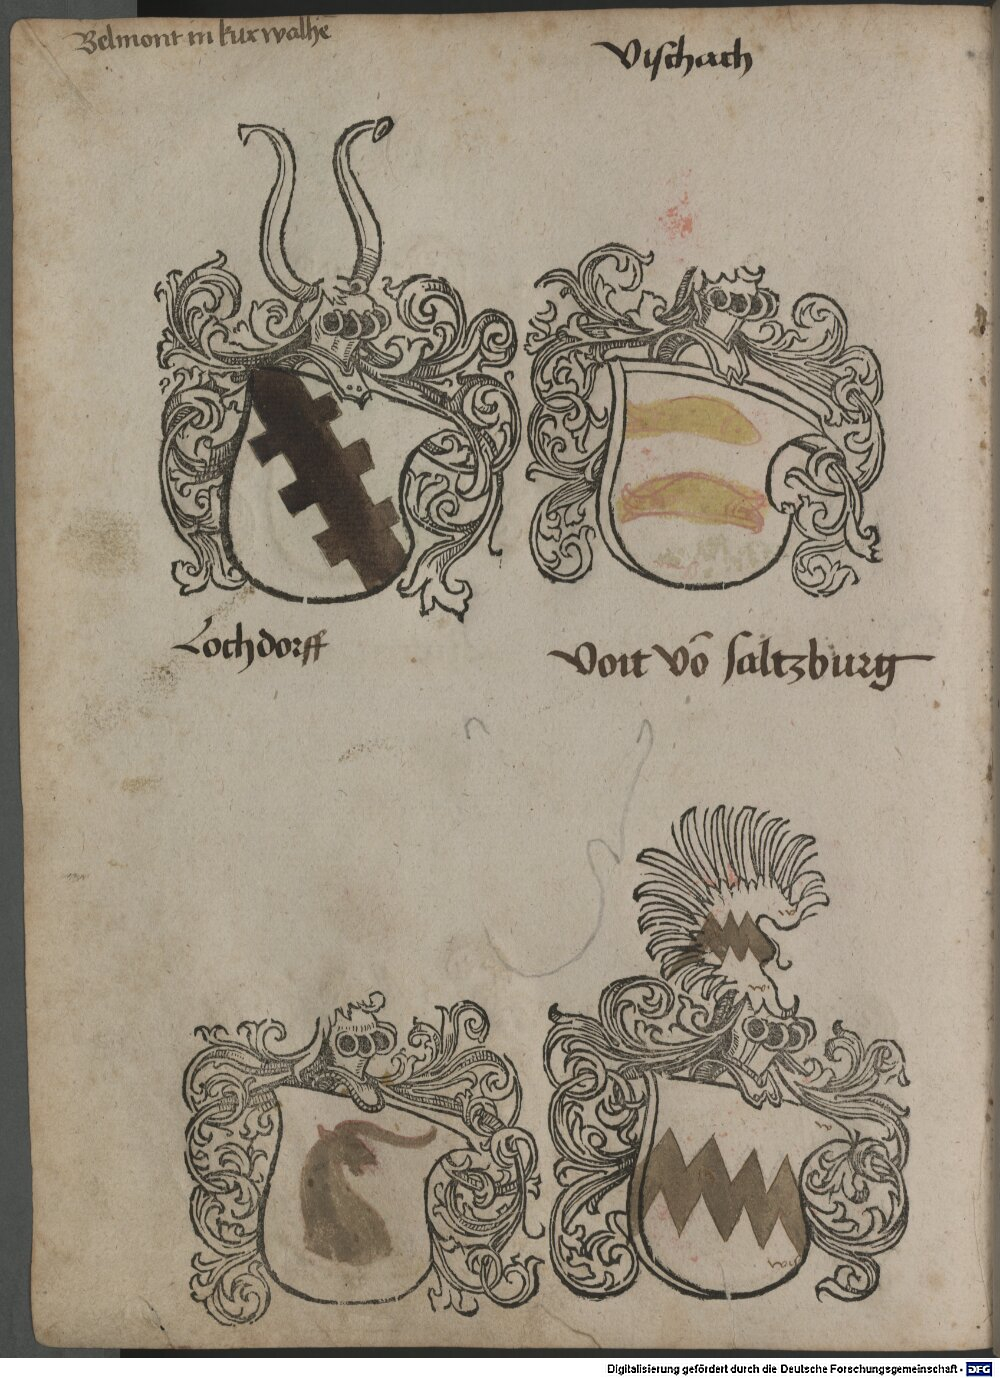 Belmont in kurwalhe
Vischach
Lochdorff
Voit võ saltzburg
Digitalisierung gefördert durch die Deutsche Forschungsgemeinschaft - DFG